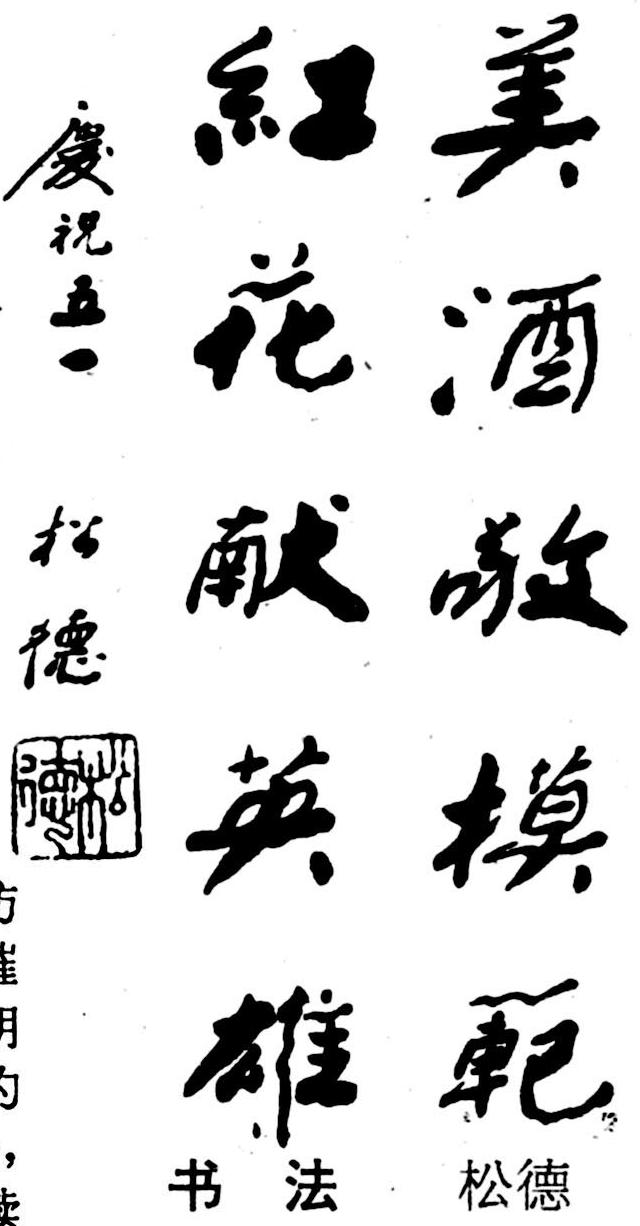 美酒敬模範
紅花献英雄
慶祝五一
松德
松德
书法 松德